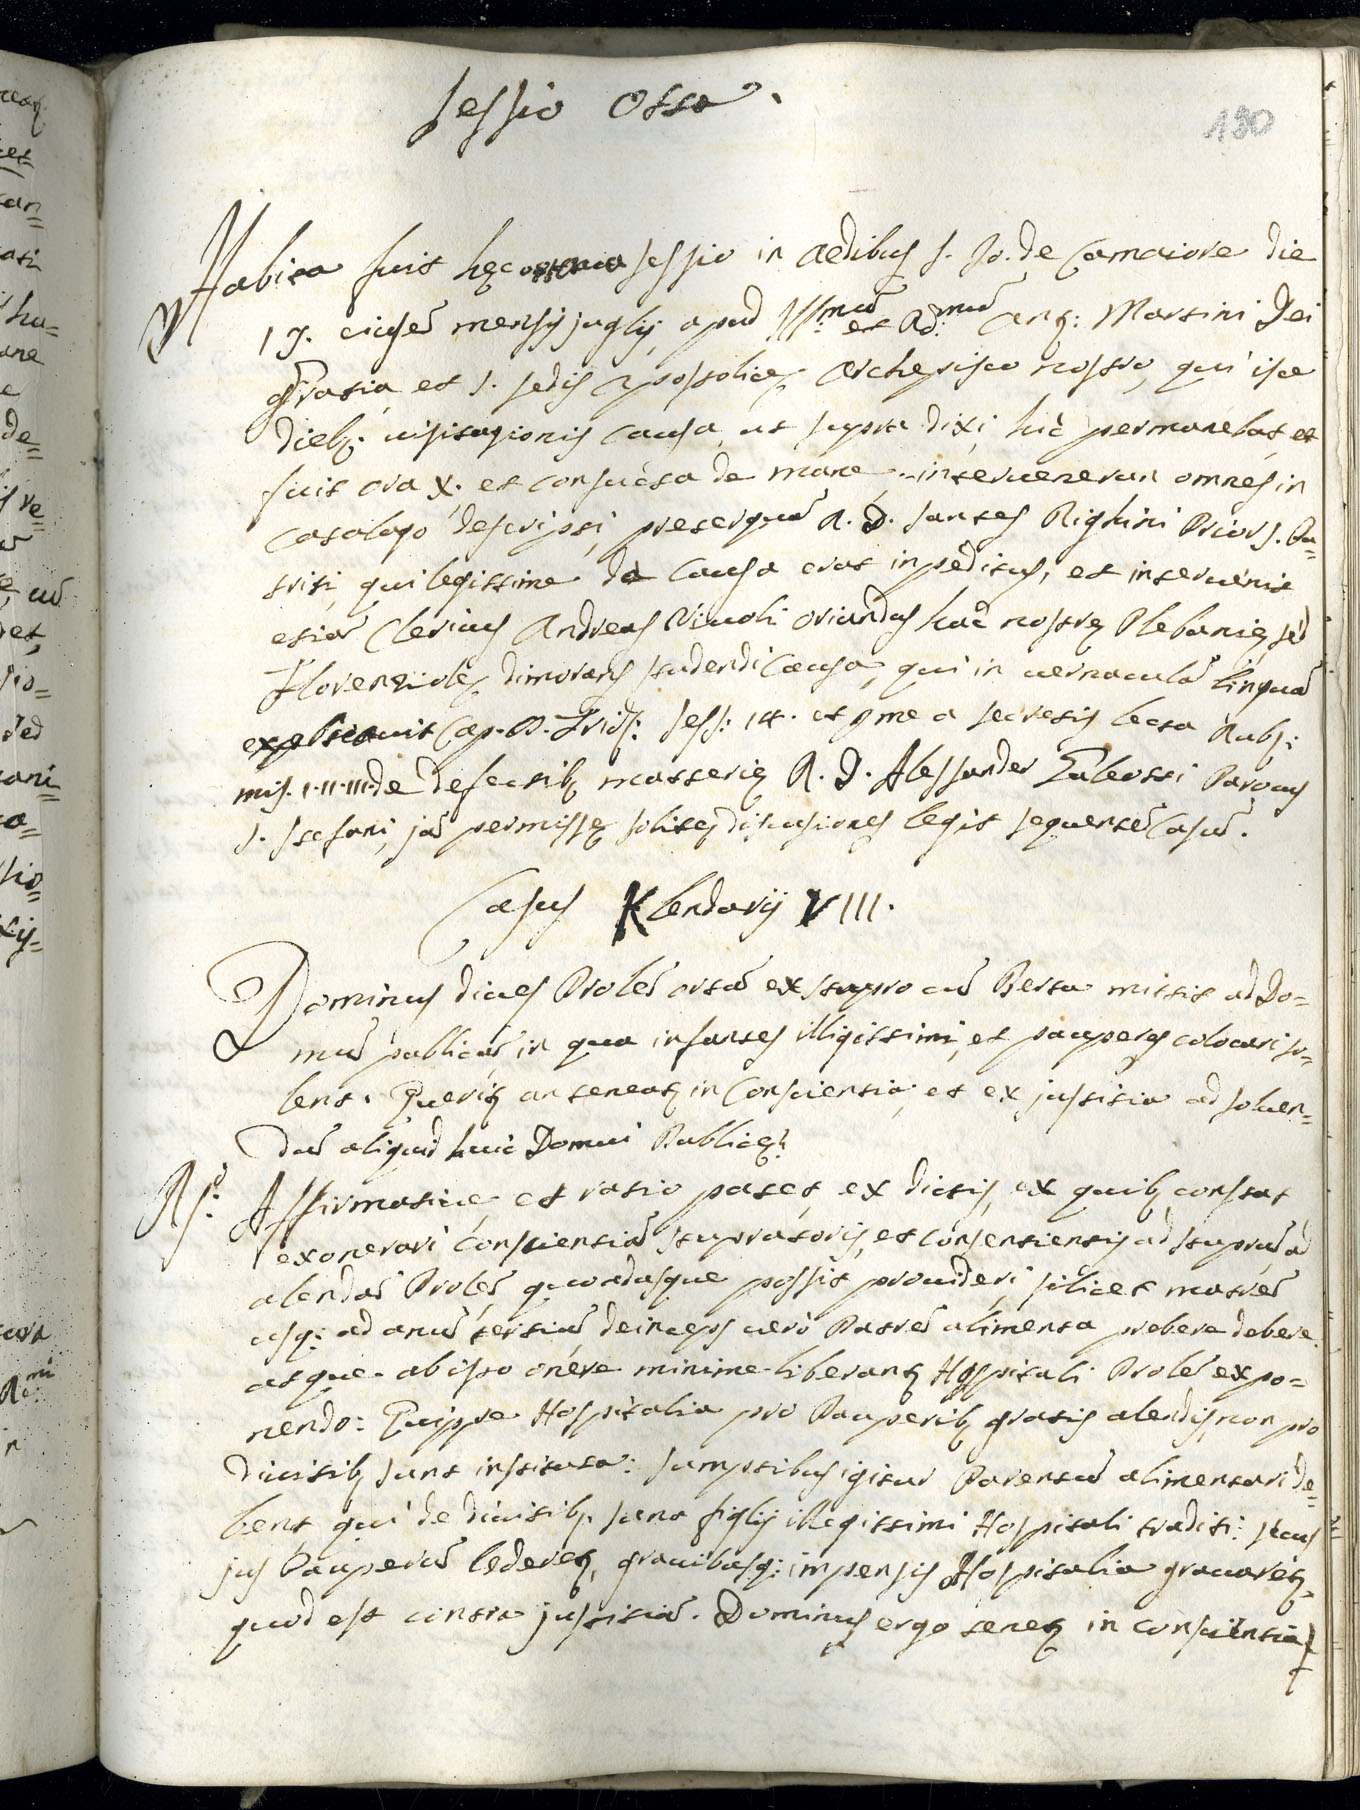 Sessio Otta.
130
Habita fuit hęc sessio in ædibus S. Jo. de Camaiore die
17. eiusdẽ mensij juglij, apud Illmũ et Rd.mũ Ant: Martini Dei
gratia, et S. sedis Apostolicę Archepisco nostro, qui ista
dieb. visitationis causa, ut supra dixi, hic permanebat, et
fuit ora X. et consueta de mane, intervenerun omnes in
catalogo descripti, preterquã R. D. Santes Righini Prior S. Pa=
trisi, qui legittime de causa erat inpeditus, et intervenit
etiã Clericus Andreas Vincoli oriundus hac nostrę Plebanię, sed
Florentiolę dimorans studendi causa, qui in vernaculã linguã
explicavit Cap. D. Trid: Sess: 14. et p me a secretis lecta Rub:
mis. I. II. III. de defectib. materię R. D. Alessander Galeotti Parocus
S. Stefani, jã permissę solitę discusiones legit sequentẽ Casũ.
Casus Klendarij VIII.
Dominus dives Prolẽ ortã ex stupro cũ Berta mittit ad Do=
mũ publicã in qua infantes illigittimi, et pauperes colocari so=
lent. Querit. an teneat. in Consciensia, et ex justitia ad solven=
dũ aliquid huic Domui Publicę?
Rs: Affirmative, et ratio patet ex dictis, ex quib. constat
exonerari Consciensiã stupratoris, et consensientis ad stuprũ ad
alendã Prolẽ quoadusque possit provideri, silicet matrẽ
usq: ad anũ tertiũ deinceps verò Patrẽ alimenta prebere debere
atque ab ipso onere minime liberant. Hospitali Prolẽ expo=
nendo: Quippe Hospitalia pro Pauperib. gratis alendis, non pro
divitib. sunt instituta: sumptibus igitur Parentũ alimentari de=
bent, qui de divitib. sunt figlij illegittimi Hospitali traditi: secus
jus Pauperũ lederet., gravibusq: impensis Hospitalia gravaret.,
quod est contra justitiã. Dominus ergo tenet. in consciensia